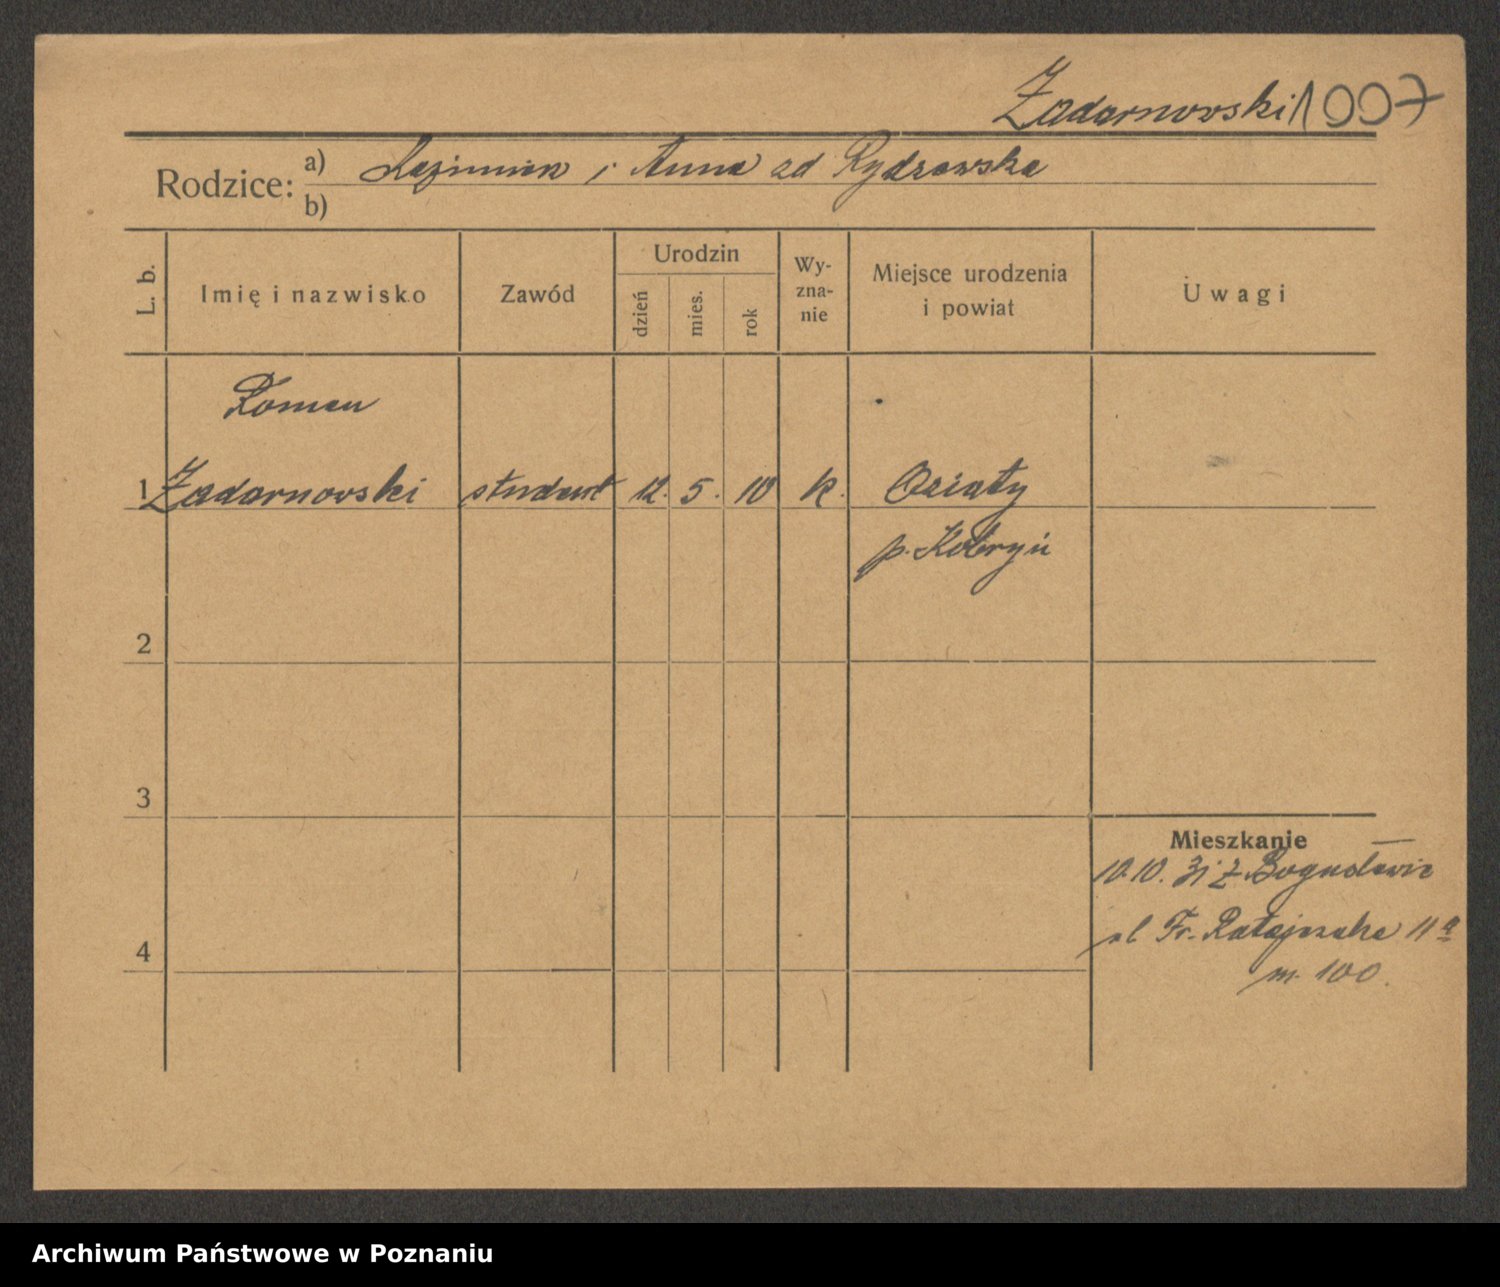 Żadarnovski 1007
Rodzice: a) Kazimierz i Anna ad Rydzewska
b)
L. b.
Imię i nazwisko
Zawód
Urodzin
dzień
mies.
rok
Wy-
zna-
nie
Miejsce urodzenia
i powiat
Uwagi
Roman
1 Żadarnovski student 12. 5. 10 k. Osiaty
p. Kobryń
2
3
4
Mieszkanie
10.10. 31 z Bogusławic
ul Fr. Ratajczaka 11a
m. 100.
Archiwum Państwowe w Poznaniu